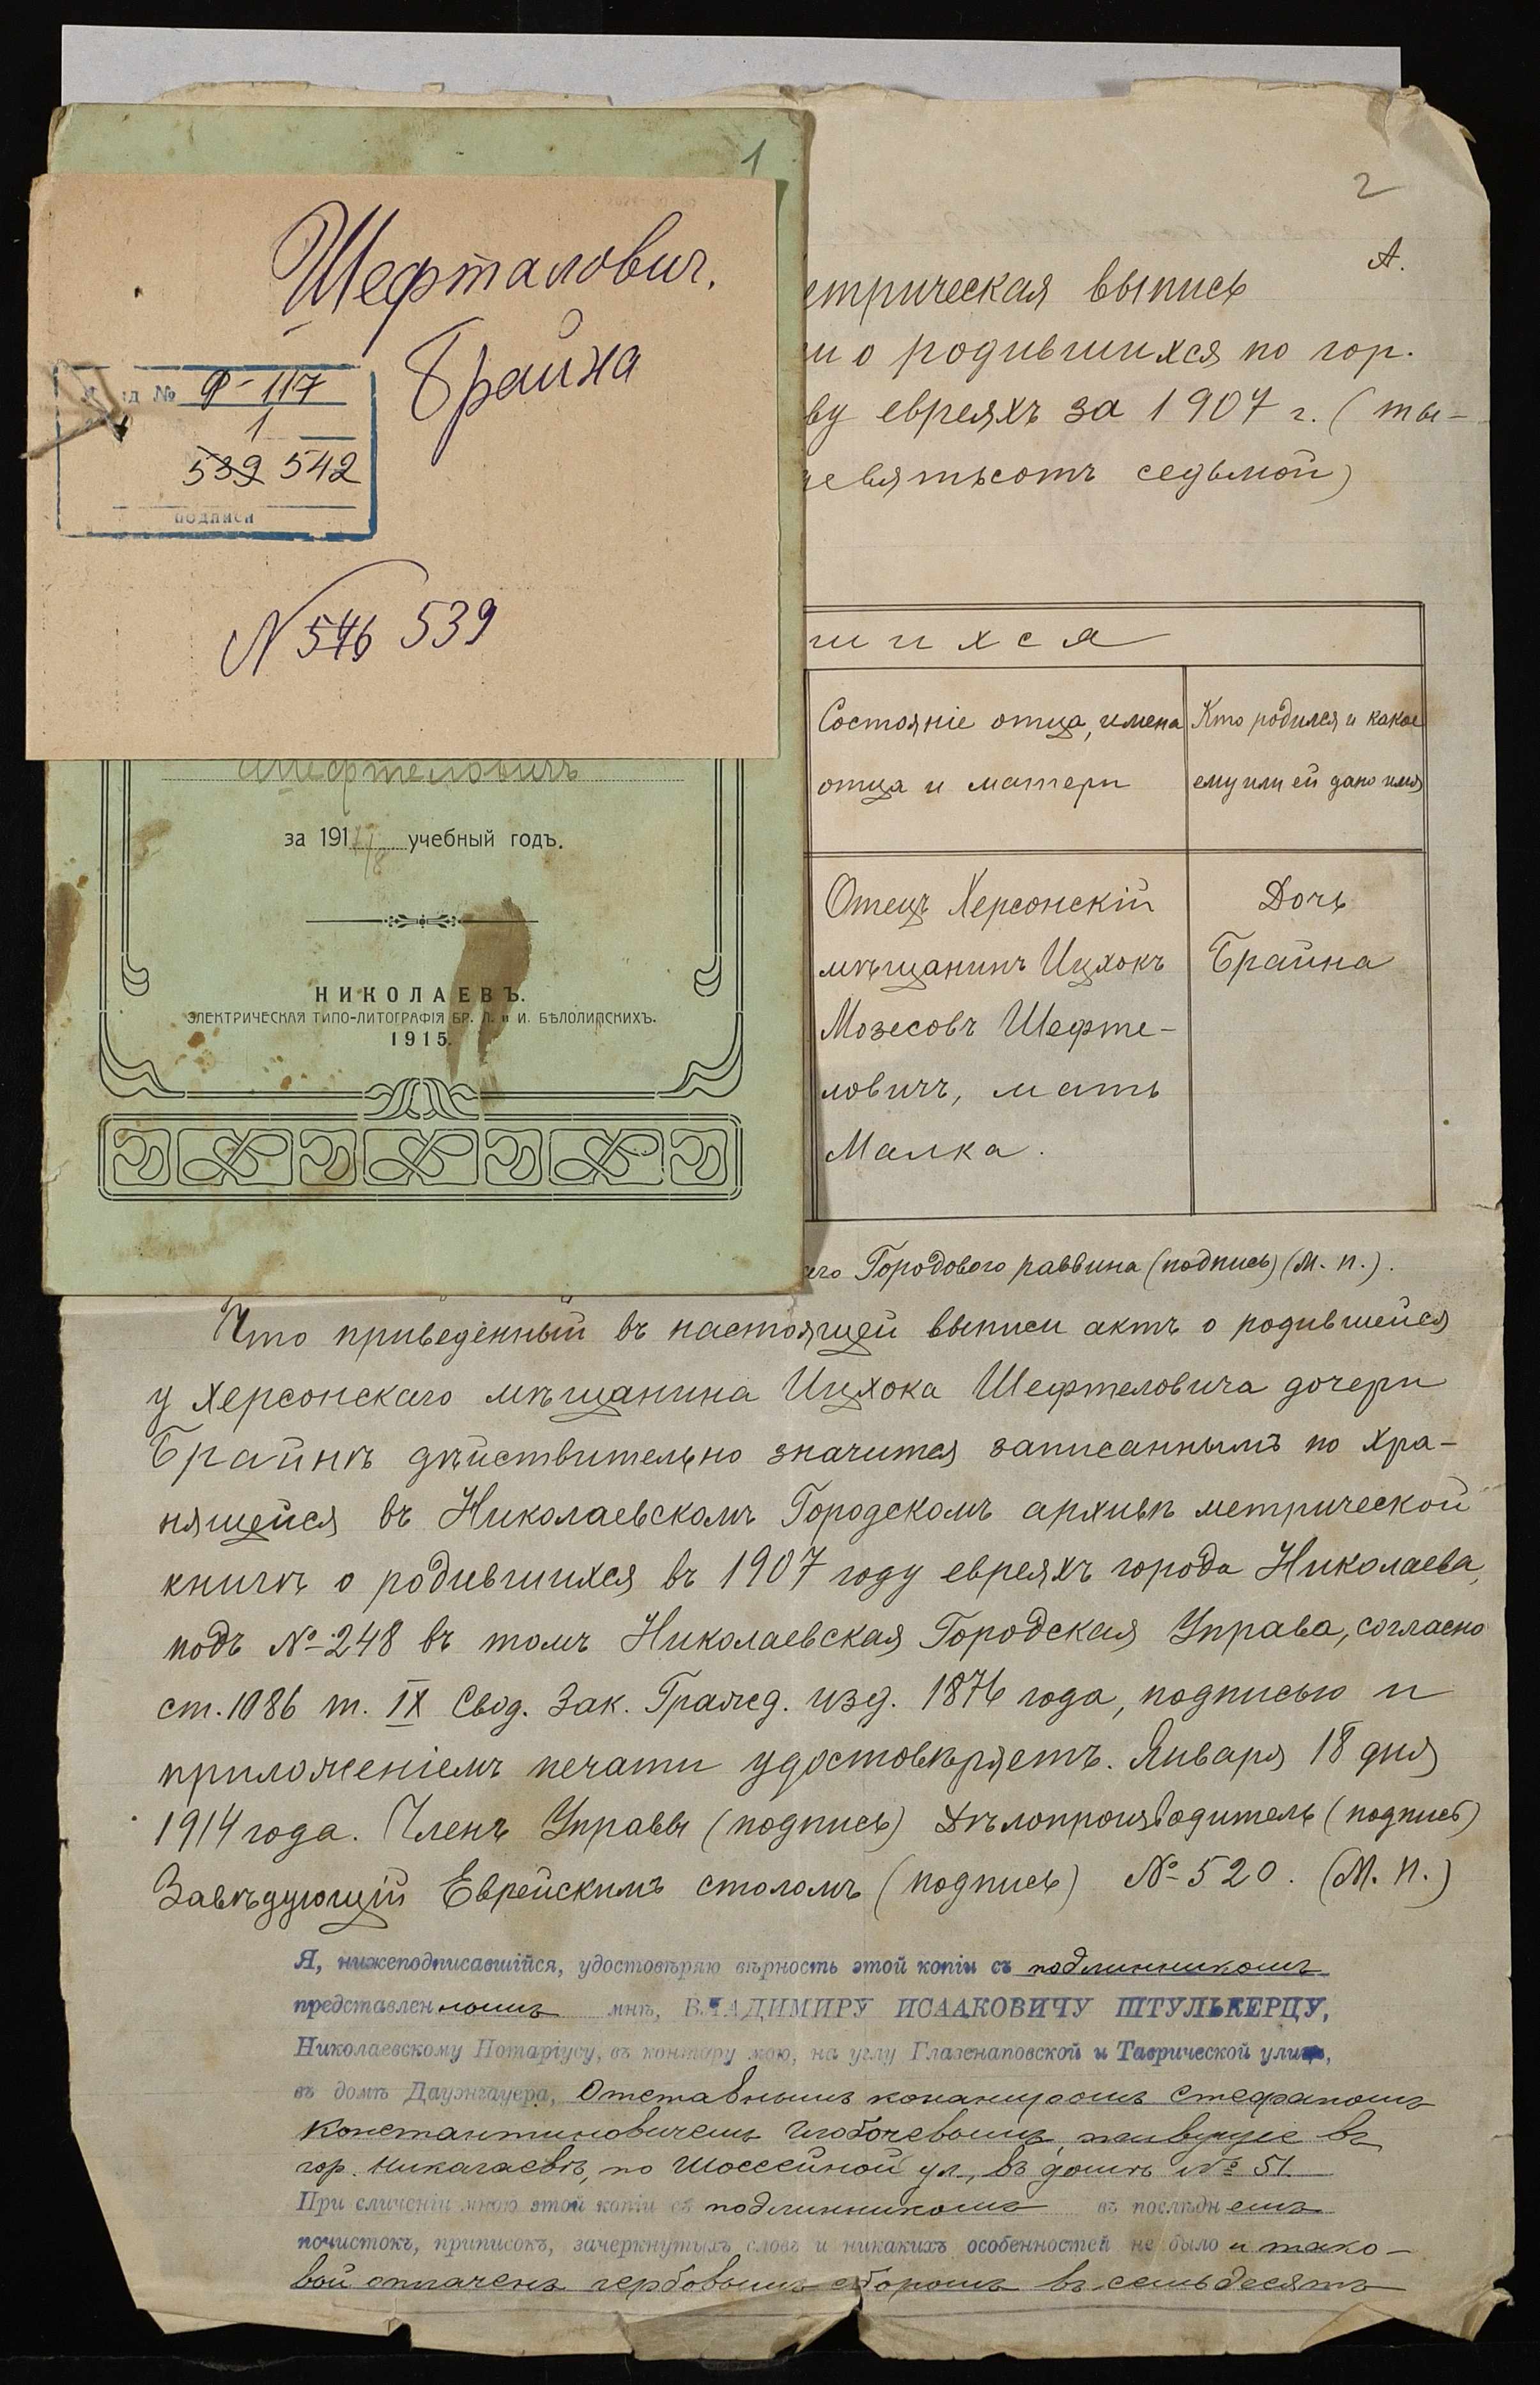 1
Шефталович.
Брайна
д № Ф-117
1
539 542
подписи
N 546 539
Шефтеловичъ
за 1917/8 учебный годъ.
НИКОЛАЕВЪ.
ЭЛЕКТРИЧЕСКАЯ ТИПО-ЛИТОГРАФІЯ БР. Л. и И. БѢЛОЛИПСКИХЪ.
1915.
2
А.
етрическая выпись
и о родившихся по гор.
ву евреяхъ за 1907 г. (ты-
девятьсотъ седьмой)
шихся
Состояніе отца, имена
отца и матери
Кто родился и какое
ему или ей дано имя
Отецъ Херсонскій
мѣщанинъ Ицхокъ
Мозесовъ Шефте-
ловичъ, мать
Малка.
Дочь
Брайна
его Городового раввина (подпись) (М. п.).
Что приведенный въ настоящей выписи актъ о родившейся
у Херсонскаго мѣщанина Ицхока Шефтеловича дочери
Брайнѣ дѣйствительно значится записаннымъ по хра-
нящейся въ Николаевскомъ Городскомъ архивѣ метрической
книгѣ о родившихся въ 1907 году евреяхъ города Николаева,
подъ №248 въ томъ Николаевская Городская Управа, согласно
ст. 1086 т. IX Свод. Зак. Гражд. изд. 1876 года, подписью и
приложеніемъ печати удостовѣряетъ. Января 18 дня
1914 года. Членъ Управы (подпись) Дѣлопроизводитель (подпись)
Завѣдующій Еврейскимъ столомъ (подпись) № 520. (М. П.)
Я, нижеподписавшійся, удостовѣряю вѣрность этой копіи съ подлинникомъ
представленномъ мнѣ, ВЛАДИМИРУ ИСААКОВИЧУ ШТУЛЬКЕРЦУ,
Николаевскому Нотаріусу, въ контору мою, на углу Глазенаповской и Таврической улицъ,
въ домѣ Дауэнгауера, Отставнымъ Стефаномъ
Константиновичемъ въ
гор. Николаевѣ, по Шоссейной ул., въ домѣ № 51.
При сличеніи мною этой копіи съ подлинникомъ въ послѣднемъ
почистокъ, приписокъ, зачеркнутыхъ словъ и никакихъ особенностей не было и тако-
вой оплаченъ гербовымъ сборомъ въ семьдесятъ